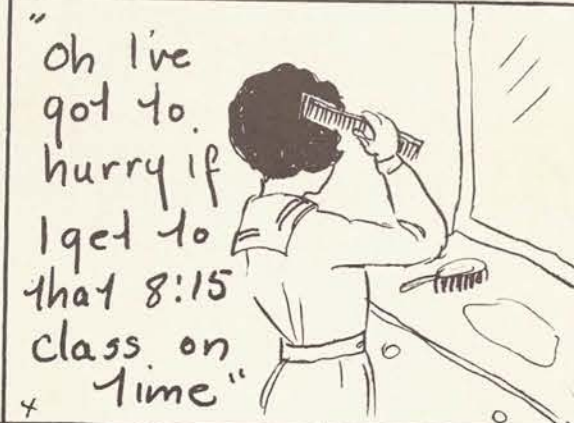 "
Oh I've
got to
hurry if
I get to
that 8:15
class on
time"
4